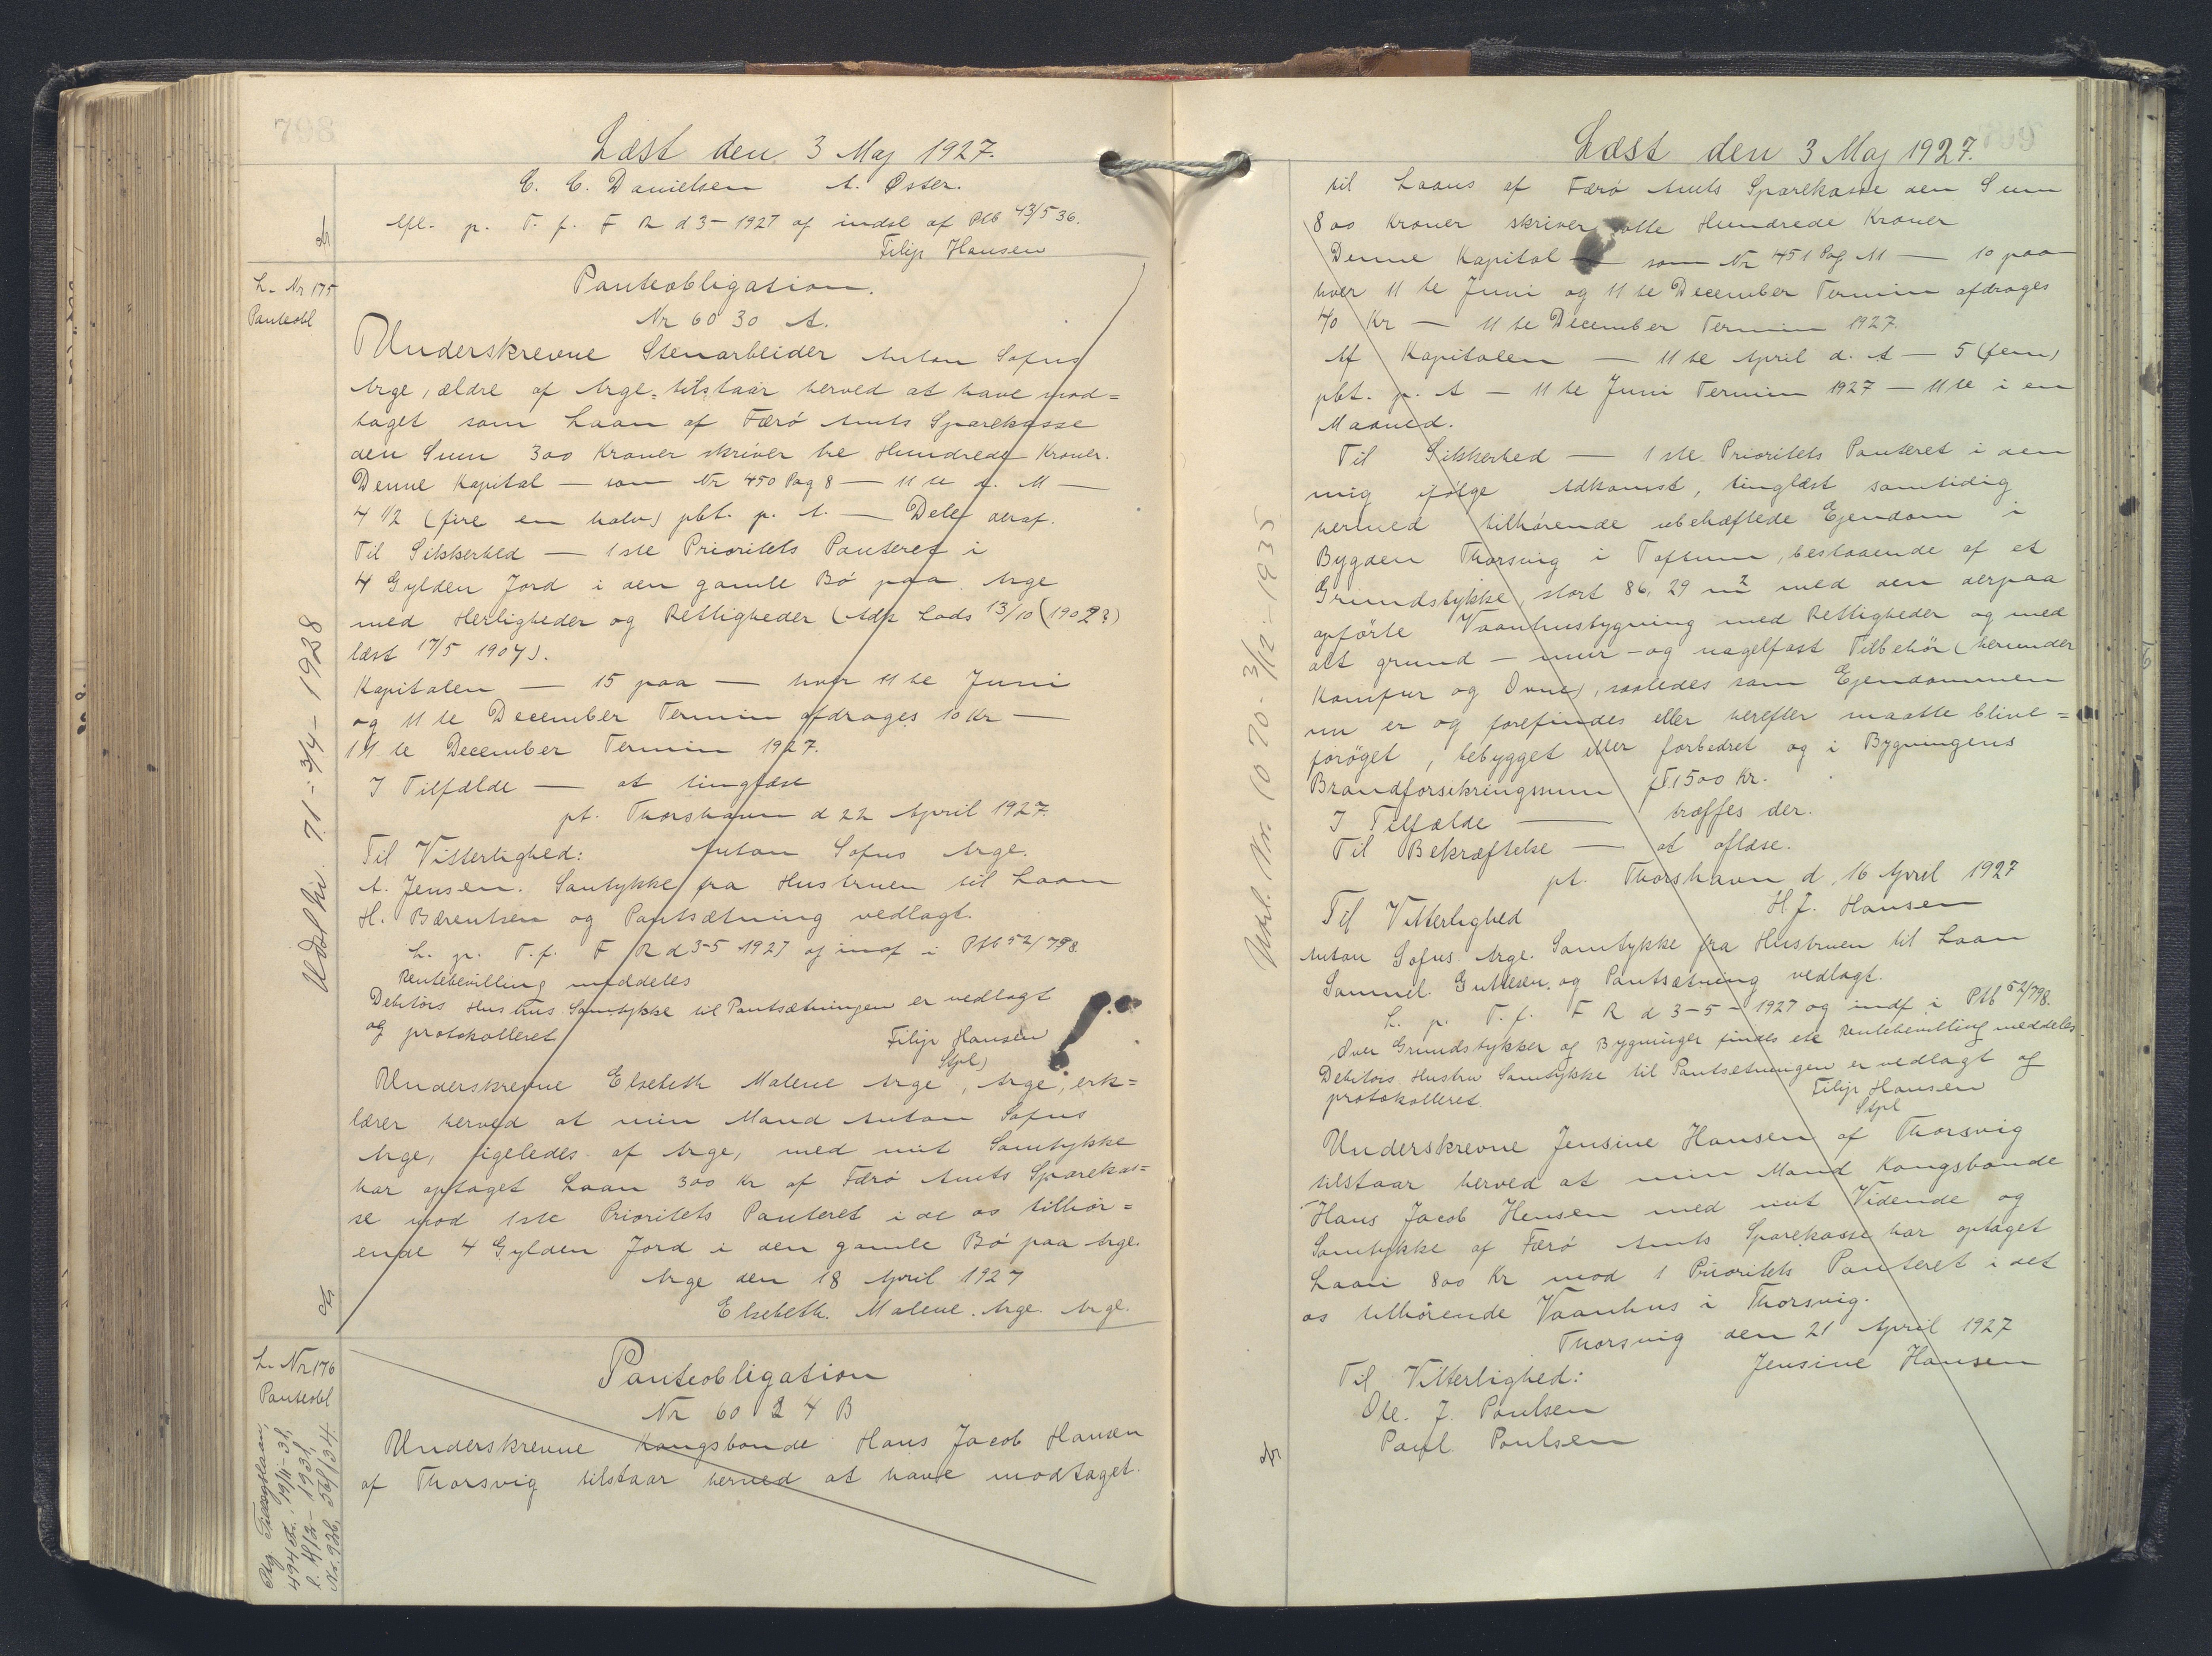 798
Læst den 3 Maj 1927.
C. C. Danielsen A. Øster.
Afl. p. T. f. F R d 3- 1927 og indsl af Ptb 43/536.
Filip Hansen
L. Nr 175
Panteobl
Panteobligation.
Nr 6030 A.
Underskrevne Stenarbeider Anton Sofus
Arge, ældre af Arge, tilstaar herved at have mod=
taget som Laan af Færö Amts Sparekasse
den Sum 300 Kroner skriver tre Hundrede Kroner.
Denne Kapital — som Nr 450 Pag 8 — 11 te d. M —
4 1/2 (fire en halv) pct. p. A. — Dele deraf.
Til Sikkerhed — 1ste Prioritets Panteret i
4 Gylden Jord i den gamle Bö paa Arge
med Herligheder og Rettigheder (Adk Lods 13/10 (1902?)
læst 17/5 1907).
Kapitalen — 15 paa — hver 11 te Juni
og 11 te December Termin afdrages 10 Kr —
11 te December Termin 1927.
I Tilfælde — at tinglæse
pt. Thorshavn d 22 April 1927.
Til Vitterlighed: Anton Sofus Arge.
A. Jensen. Samtykke fra Hustruen til Laan
H. Bærentsen og Pantsætning vedlagt.
L. p. T. f. F R d 3-5 1927 og indf i Ptb 52/798.
Rentebevilling meddeles
Debitors Hustrus Samtykke til Pantsætningen er vedlagt
og protokolleret
Filip Hansen
Stpl)
Underskrevne Elsebeth Malene Arge, Arge, erk=
lærer herved at min Mand Anton Sofus
Arge, ligeledes af Arge, med mit Samtykke
har optaget Laan 300 Kr af Færö Amts Sparekas=
se mod 1ste Prioritets Panteret i de os tilhör=
ende 4 Gylden Jord i den gamle Bö paa Arge.
Arge den 18 April 1927
Elsebeth. Malene. Arge. Arge.
Udsl Nr. 71 = 3/4 - 1928
L. Nr 176
Panteobl
Panteobligation
Nr 6024 B
Underskrevne Kongsbonde Hans Jacob Hansen
af Thorsvig tilstaar herved at have modtaget.
494 19/11-31,
l. 4/2-1931,
Nr. 936, 56/34.
Læst den 3 Maj 1927.
til Laans af Færö Amts Sparekasse den Sum
800 Kroner skriver otte Hundrede Kroner
Denne Kapital — som Nr 451 Pag 11 — 10 paa
hver 11 te Juni og 11 te December Termin afdrages
40 Kr — 11 te December Termin 1927.
Af Kapitalen — 11 te April d. A — 5 (fem)
pct. p. A — 11 te Juni Termin 1927 — 11 te i en
Maaned.
Til Sikkerhed — 1ste Prioritets Panteret i den
mig ifølge Adkomst, tinglæst samtidig
hermed tilhørende ubehæftede Ejendom i
Bygden Thorsvig i Toftum, bestaaende af et
Grundstykke, stort 86,29 m2 med den derpaa
opförte Vaanhusbygning med Rettigheder og med
alt grund - mur - og nagelfast Tilbehör (herunder
Komfur og Ovne), saaledes som Ejendommen
nu er og forefindes eller herefter maatte blive=
forøget, bebygget eller forbedret og i Bygningens
Brandforsikringssum pt. 1500 Kr.
I Tilfælde — træffes der.
Til Bekræftelse — at aflæse.
pt. Thorshavn d. 16 April 1927
Til Vitterlighed H. J. Hansen
Anton Sofus Arge. Samtykke fra Hustruen til Laan
Samuel Guttesen. og Pantsætning vedlagt.
L. p. T. f. F R d 3-5-1927 og indf i Ptb 52/798.
Over Grundstykker og Bygninger findes ete Rentebevilling meddeles
Debitors Hustru Samtykke til Pantsetningen er vedlagt og
protokolleret.
Filip Hansen
Stpl
Underskrevne Jensine Hansen af Thorsvig
tilstaar herved at min Mand Kongsbonde
Hans Jacob Hensen med mit Vidende og
Samtykke af Færö Amts Sparekasse har optaget
Laan 800 Kr mod 1 Prioritets Panteret i det
os tilhörende Vaanhus i Thorsvig.
Thorsvig den 21 April 1927
Til Vitterlighed: Jensine Hansen
Ole. J. Poulsen
Paul Poulsen
Udsl. Nr. 1070 - 3/12 - 1935